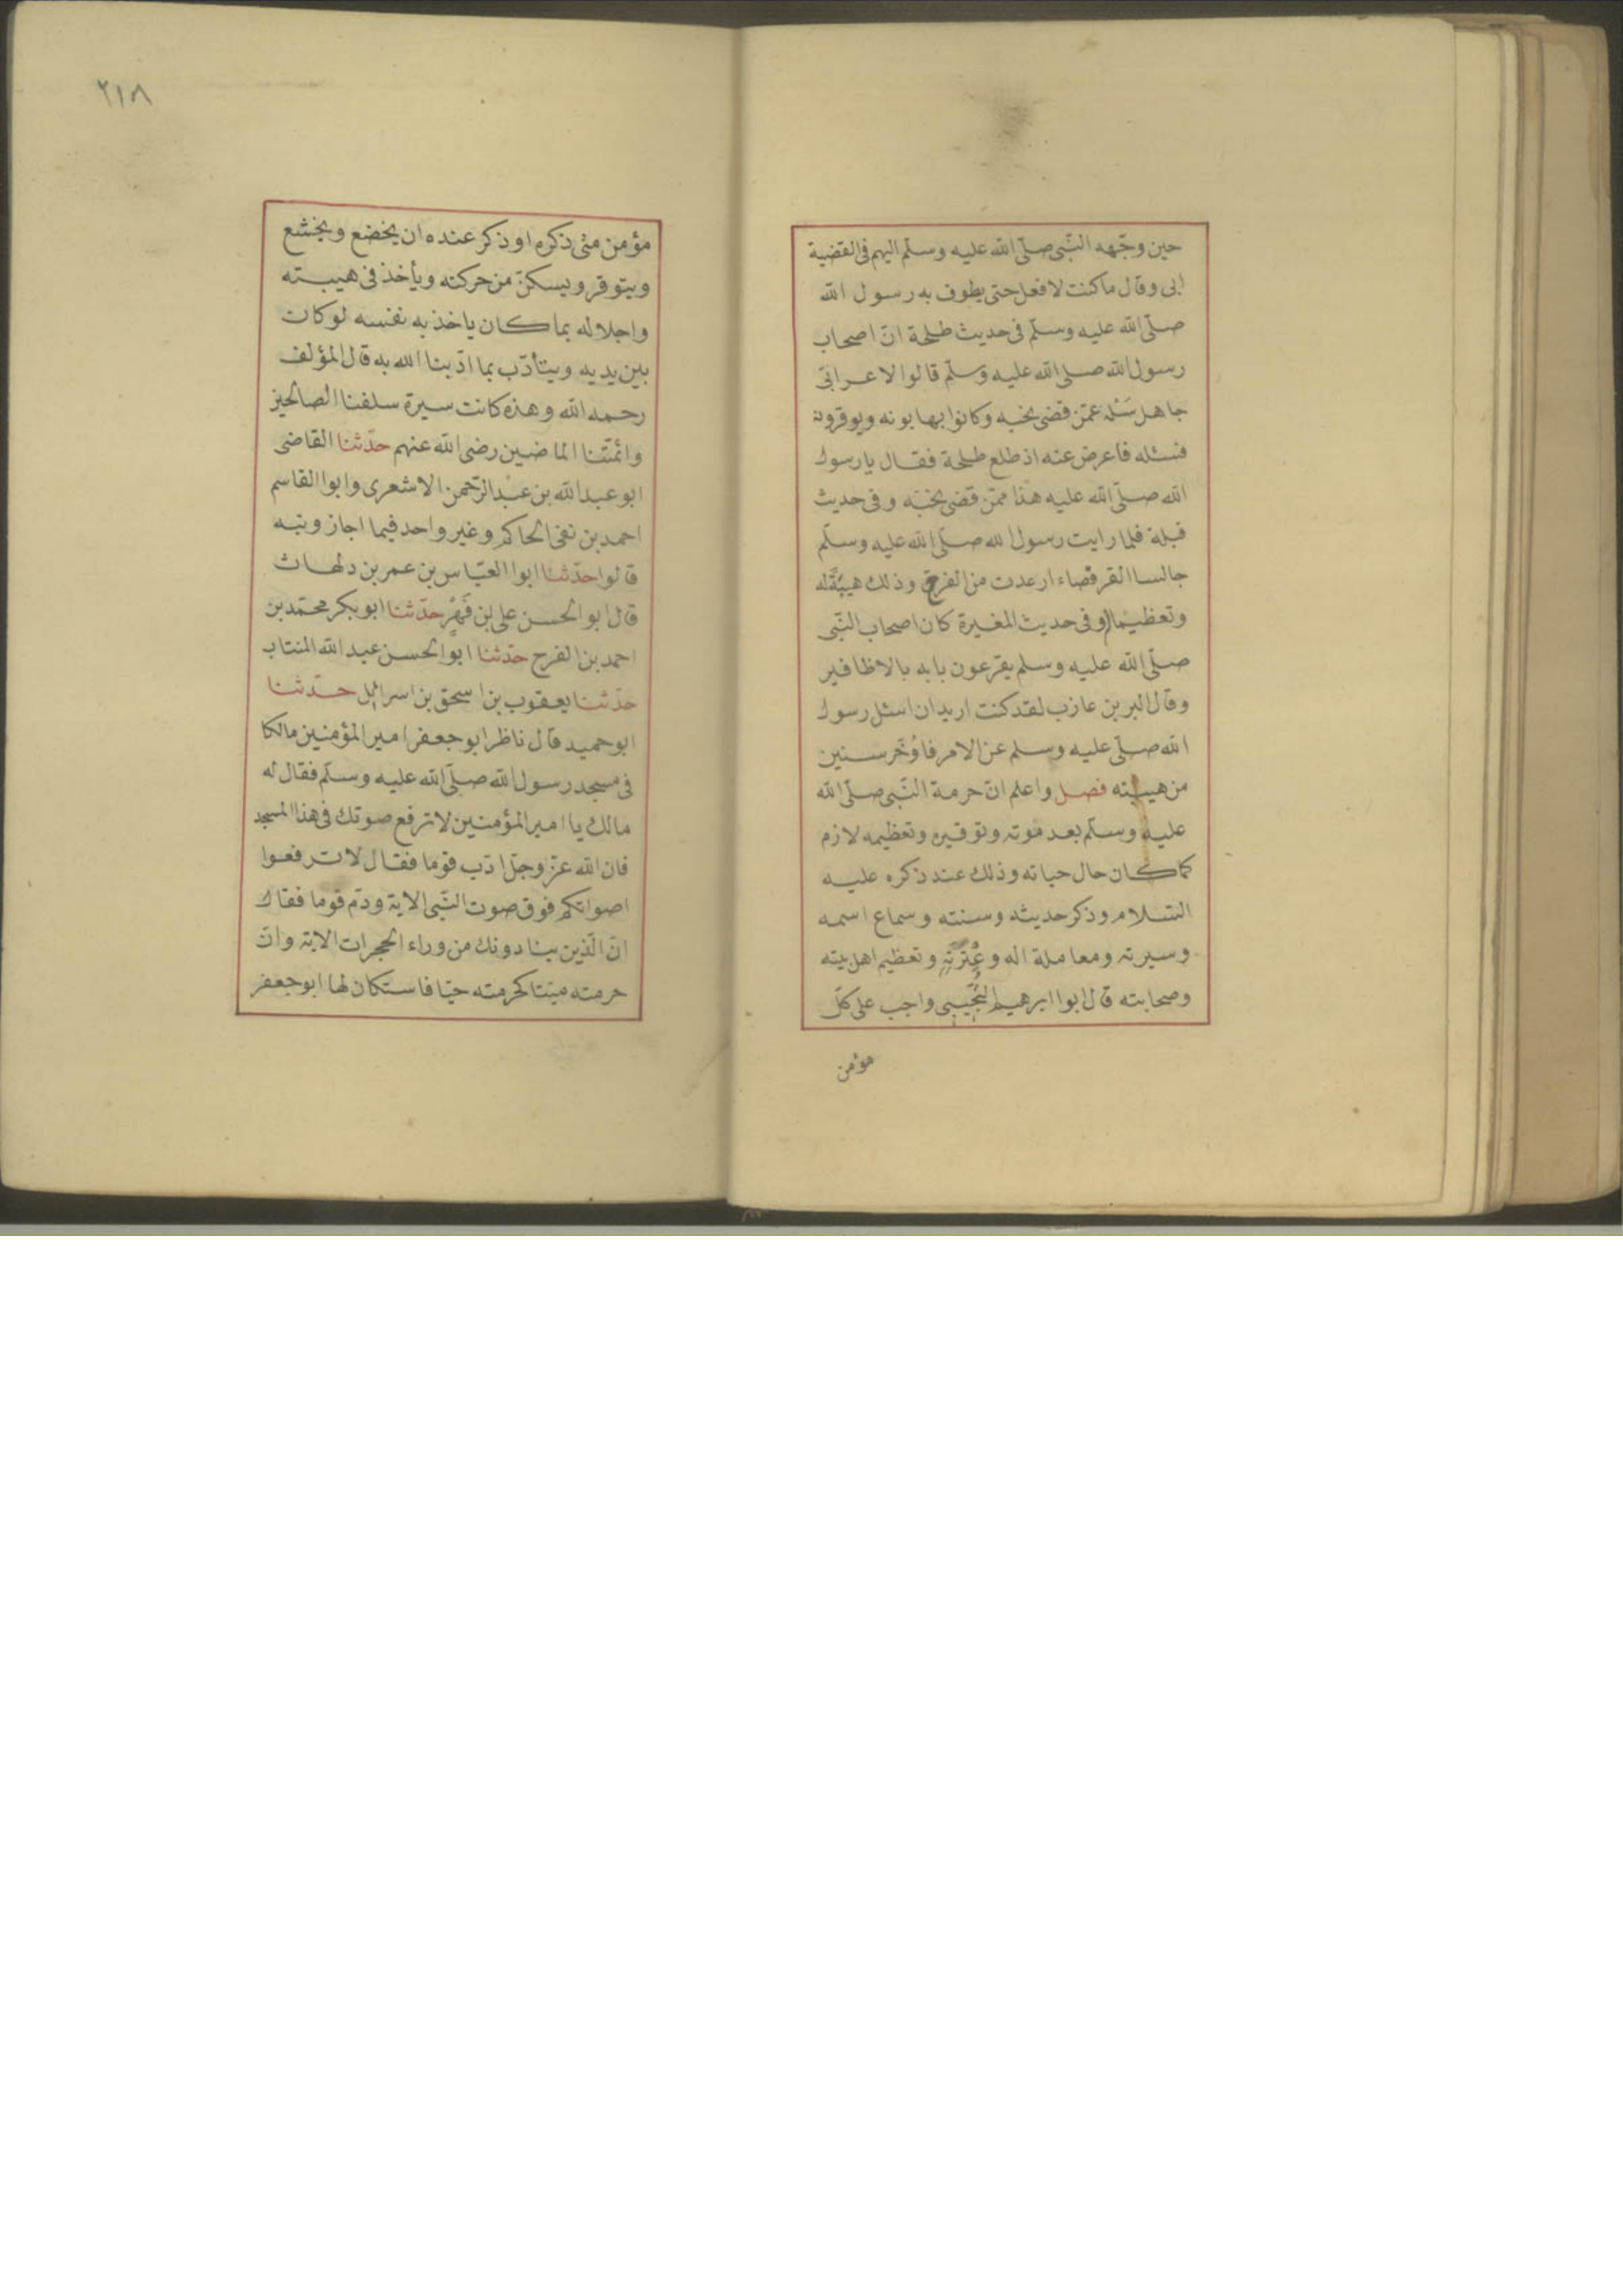 حين وجّهه النّبى صلّى الله عليه وسلّم اليهم فى القضية
ابى وقال ما كنت لافعل حتى يطوف به رسول الله
صلّى الله عليه وسلّم فى حديث طلحة انّ اصحاب
رسول الله صلى الله عليه وسلّم قالوا لاعرابىّ
جاهل سَئله عمّن قضى نحبه وكانوا يهابونه ويوقرونه
فسئله فاعرض عنه اذ طلع طلحة فقال يا رسول
الله صلّى الله عليه هذا ممّن قضى نحبَه وفى حديث
قيلة فلما رايت رسول الله صلّى الله عليه وسلّم
جالسا القرفصاء ارعدت من الفرق وذلك هيبَةً له
وتعظيمًا وفى حديث المغيرة كان اصحاب النّبى
صلّى الله عليه وسلم يقرعون بابه بالاظافير
وقال البر بن عازب لقد كنت اريد ان اسئل رسول
الله صلّى عليه وسلم عن الامر فاوُخّر سنين
من هيبته فصل واعلم انّ حرمة النّبى صلّى الله
عليه وسلّم بعد موته وتوقيره وتعظيمه لازم
كما كان حال حياته وذلك عند ذكره عليه
السّلام وذكر حديثه وسنته وسماع اسمه
وسيرته ومعاملة اله وعِتْرَتِهِ وتعظيم اهل بيته
وصحابته قال ابوا ابرهيم التُّجَيبى واجب على كلّ
مؤمن
٢١٨
مؤمن متى ذكره او ذكر عنده ان يخضع ويخشع
ويتوقر ويسكنّ من حركته ويأخذ فى هيبته
واجلاله بما كان ياخذ به نفسه لو كان
بين يديه ويتأدّب بما ادّبنا الله به قال المؤلف
رحمه الله وهذه كانت سيرة سلفنا الصالحين
وائمّتنا الماضين رضى الله عنهم حدّثنا القاضى
ابو عبد الله بن عبد الرّحمن الاشعرى وابوا القاسم
احمد بن نقى الحاكم وغير واحد فيما اجازونيه
قالوا حدّثنا ابوا العبّاس بن عمر بن دلهاث
قال ابو الحسن على بن فَهْرٍ حدّثنا ابو بكر محمّد بن
احمد بن الفرح حدّثنا ابوا الحسن عبد الله المنتاب
حدّثنا يعقوب بن اسحق بن اسرائيل حدّثنا
ابو حميد قال ناظر ابو جعفر امير المؤمنين مالكا
فى مسجد رسول الله صلّى الله عليه وسلّم فقال له
مالك يا امير المؤمنين لا ترفع صوتك فى هذا المسجد
فان الله عزّ وجلّ ادّب قوما فقال لا ترفعوا
اصواتكم فوق صوت النّبى الاية وذمّ قوما فقال
انّ الّذين ينادونك من وراء الحجرات الاية وانّ
حرمته ميّتا كحرمته حيّا فاستكان لها ابو جعفر